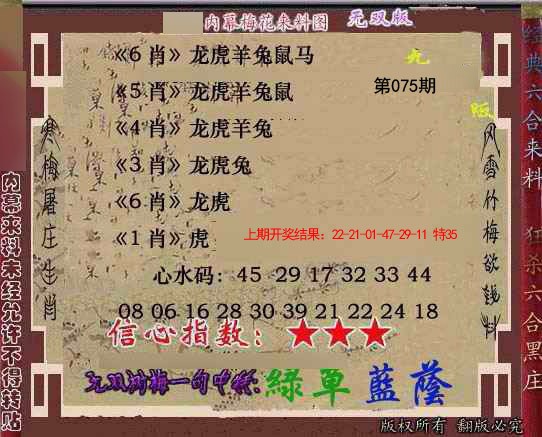 内幕梅花来料图 无双版
《6肖》龙虎羊兔鼠马
《5肖》龙虎羊兔鼠
第075期
《4肖》龙虎羊兔
《3肖》龙虎兔
《6肖》龙虎
《1肖》虎
上期开奖结果：22-21-01-47-29-11 特35
心水码：45 29 17 32 33 44
08 06 16 28 30 39 21 22 24 18
信心指数：★★★
绿单蓝荫
版权所有 翻版必究
寒梅屠庄生肖
风雪竹梅欲钱料
内幕来料未经允许不得转贴
经典六合来料
狂杀六合黑庄